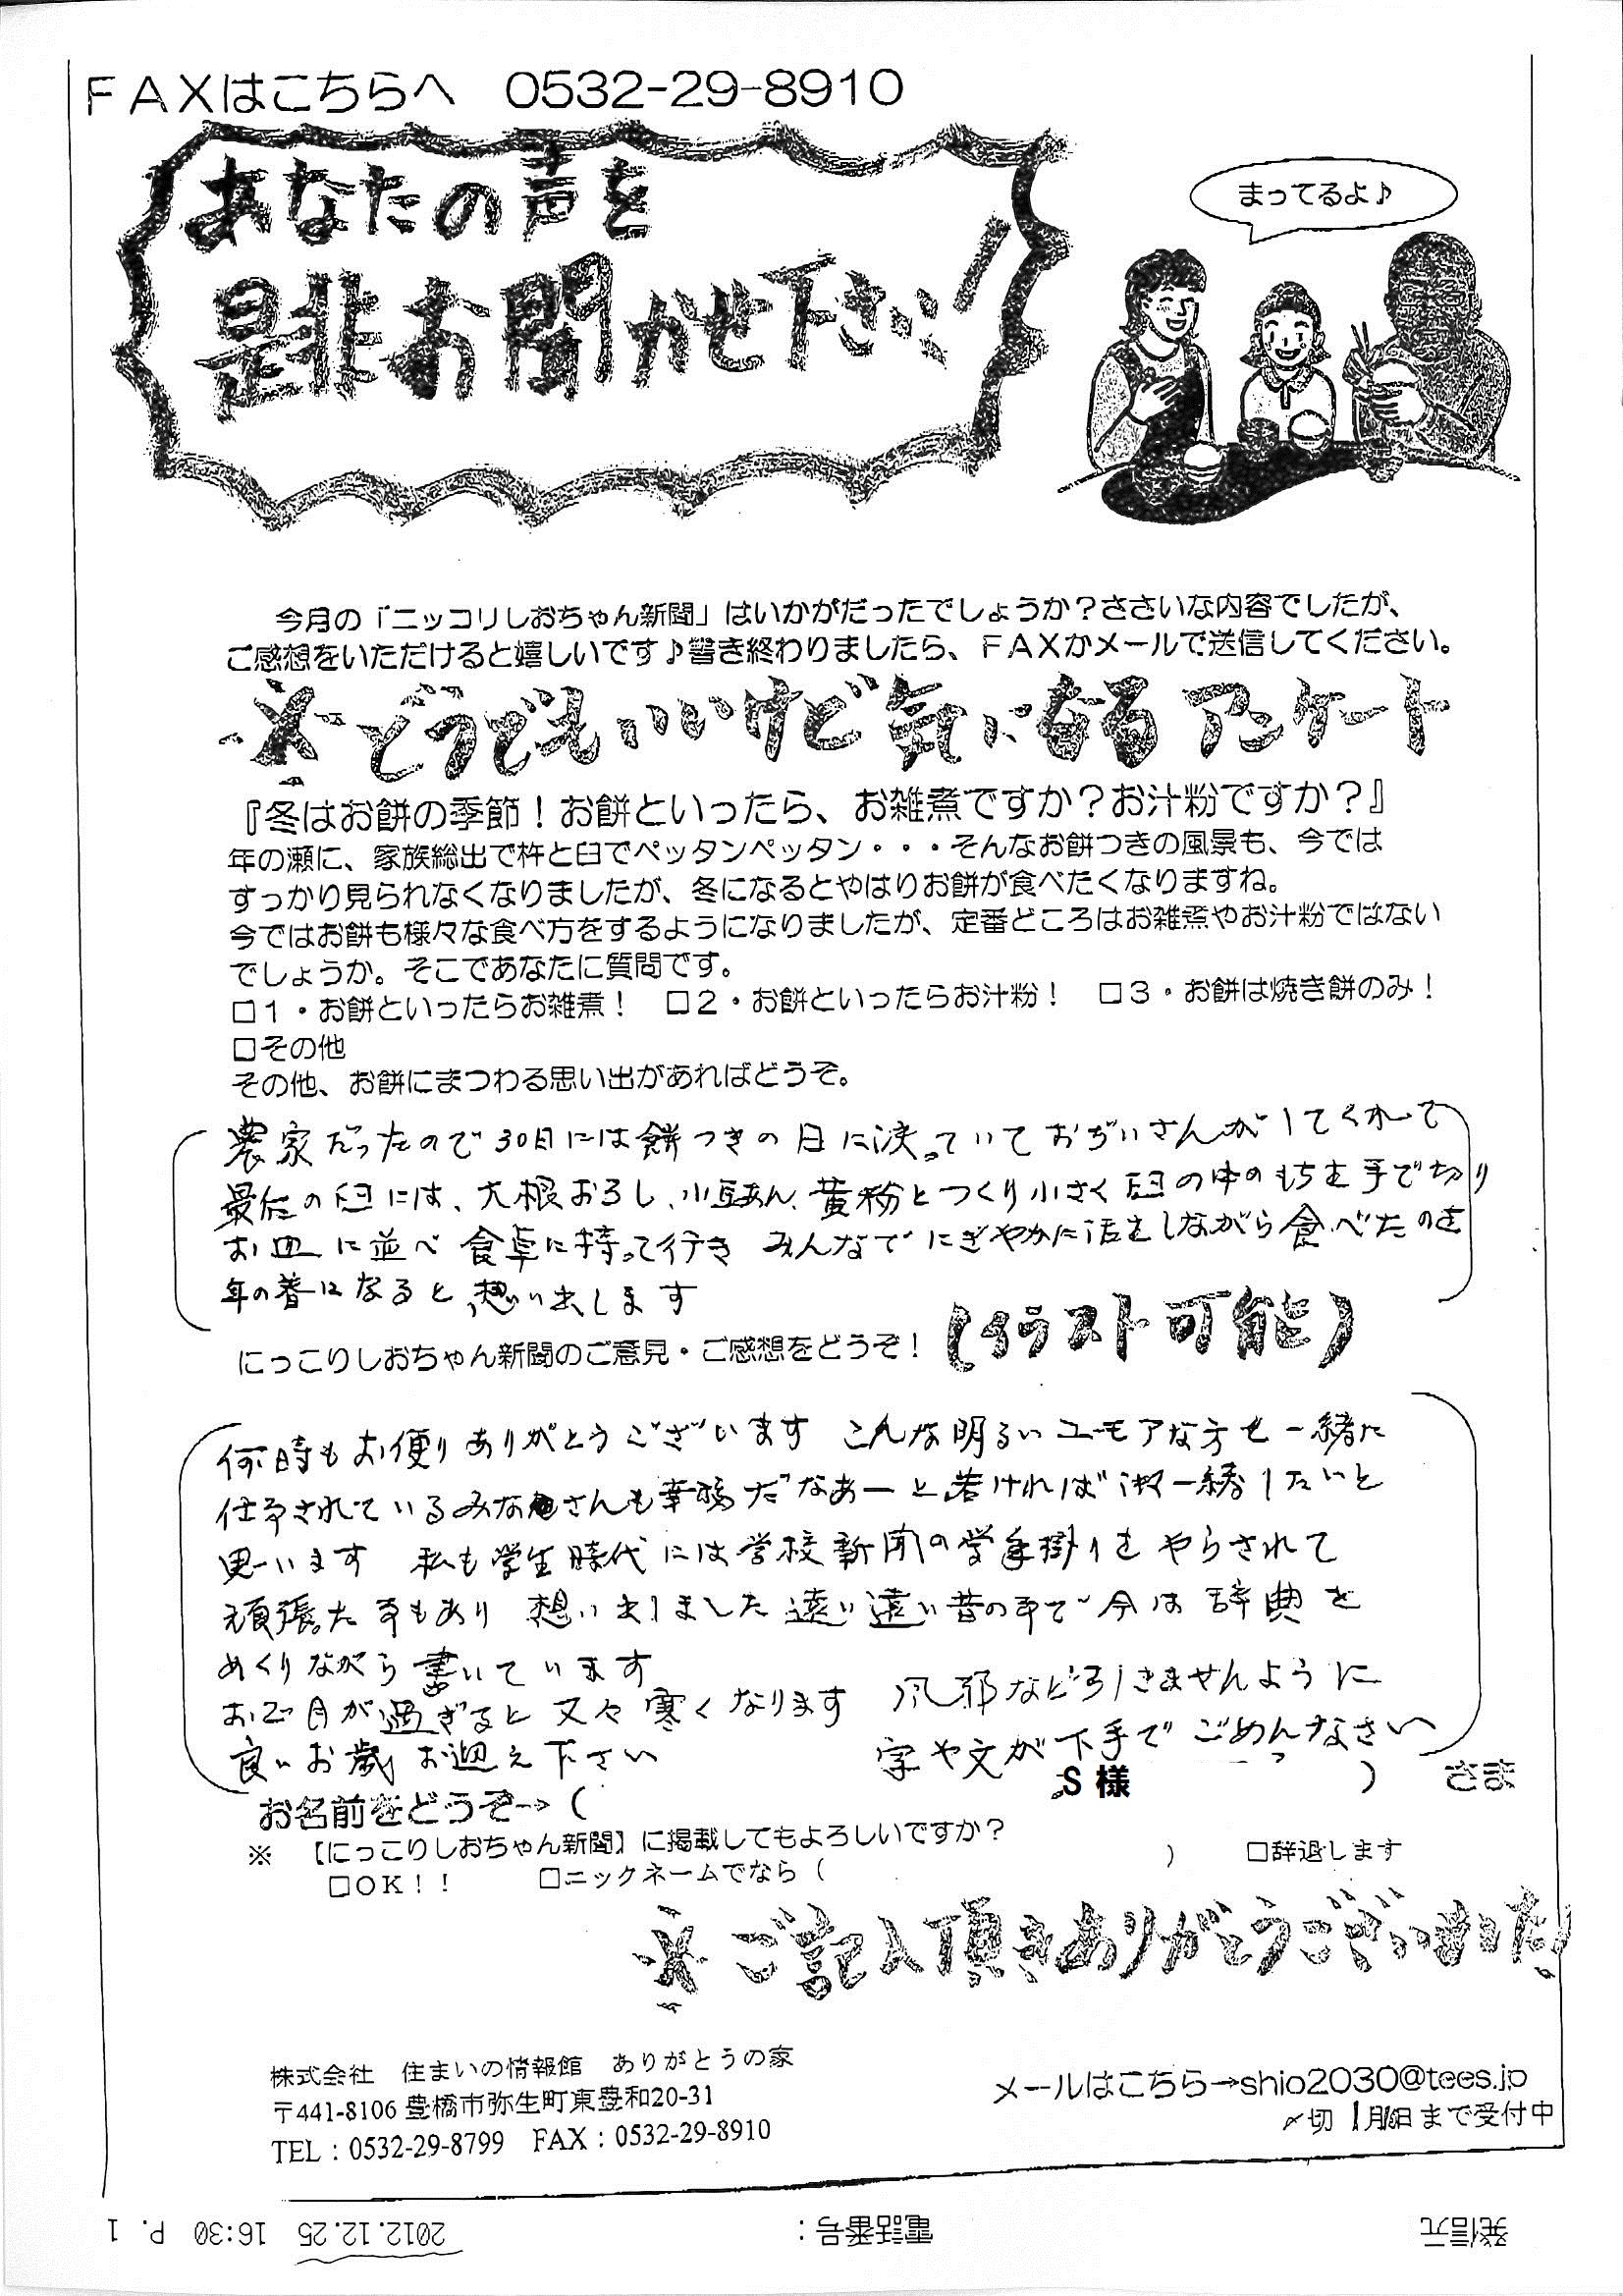 FAXはこちらへ　0532-29-8910
あなたの声を
是非お聞かせ下さい!
まってるよ♪
今月の「ニッコリしおちゃん新聞」はいかがだったでしょうか？ささいな内容でしたが、
ご感想をいただけると嬉しいです♪書き終わりましたら、FAXかメールで送信してください。
どうでもいいけど気になるアンケート
『冬はお餅の季節！お餅といったら、お雑煮ですか？お汁粉ですか？』
年の瀬に、家族総出で杵と臼でペッタンペッタン・・・そんなお餅つきの風景も、今では
すっかり見られなくなりましたが、冬になるとやはりお餅が食べたくなりますね。
今ではお餅も様々な食べ方をするようになりましたが、定番どころはお雑煮やお汁粉ではない
でしょうか。そこであなたに質問です。
□1・お餅といったらお雑煮！　□2・お餅といったらお汁粉！　□3・お餅は焼き餅のみ！
□その他
その他、お餅にまつわる思い出があればどうぞ。
農家だったので30日には餅つきの日に決っていておぢいさんがしてくれて
最后の臼には、大根おろし、小豆あん、黄粉とつくり小さく臼の中のもちを手で切り
お皿に並べ 食卓に持って行き みんなでにぎやかに話をしながら食べたのを
年の暮になると想い出します
にっこりしおちゃん新聞のご意見・ご感想をどうぞ！ (イラスト可能)
何時もお便りありがとうございます こんな明るいユーモアな方と一緒に
仕事されているみなさんも幸福だなあーと若ければ 一緒したいと
思います 私も学生時代には学校新聞の学年掛りをやらされて
頑張た事もあり 想い出しました遠い遠い昔の事で 今は辞典を
めくりながら書いています
お正月が過ぎると又々寒くなります 風邪など引きませんように
良いお歳お迎え下さい 字や文が下手でごめんなさい
お名前をどうぞ→（ S様 ） さま
※ 【にっこりしおちゃん新聞】に掲載してもよろしいですか？
□OK！！ □ニックネームでなら（ ） □辞退します
ご記入頂きありがとうございました
株式会社　住まいの情報館　ありがとうの家
〒441-8106 豊橋市弥生町東豊和20-31
TEL：0532-29-8799　FAX：0532-29-8910
メールはこちら→shio2030@tees.jp
〆切 まで受付中
発信元 電話番号： 2012.12.25 16:30 P. 1